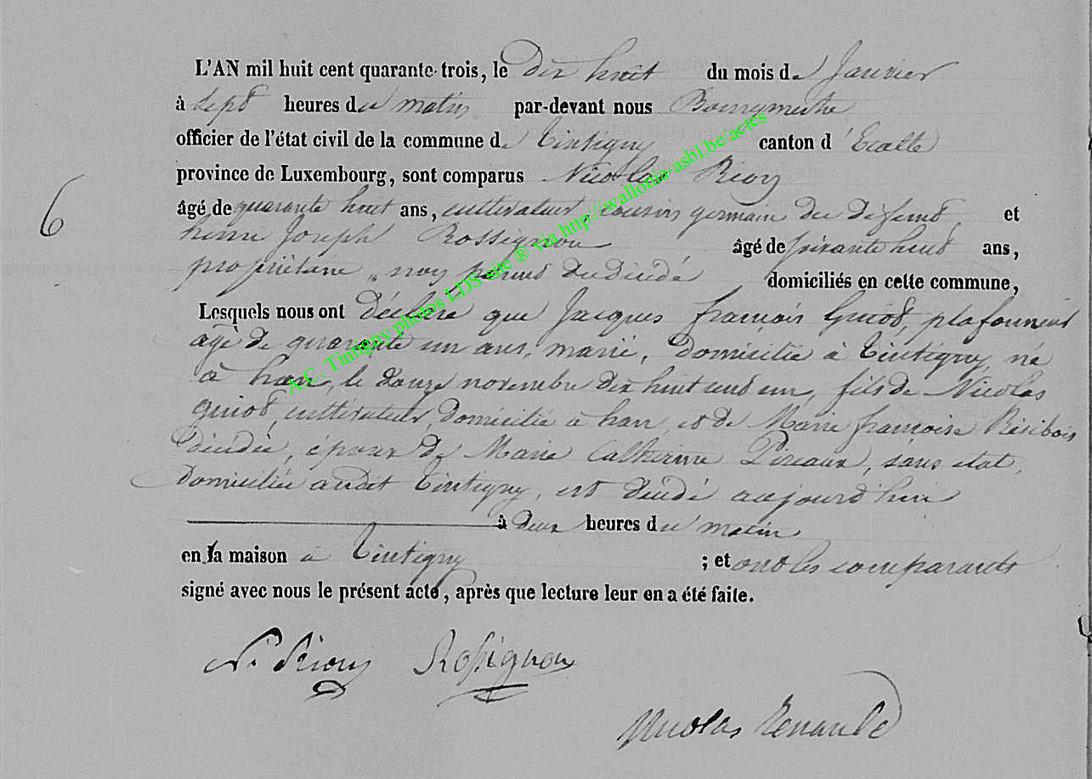 L'AN mil huit cent quarante-trois, le dix huit du mois de Janvier
à sept heures du matin par-devant nous Bourgmestre
officier de l'état civil de la commune de Tintigny canton d'Etalle
province de Luxembourg, sont comparus Nicolas Rion
âgé de quarante huit ans, cultivateur, cousin germain du défunt et
Joseph Rossignon âgé de ans,
propriétaire, non parent du décédé domiciliés en cette commune,
Lesquels nous ont déclaré que Jacques françois Guiot, plafonneur
âgé de quarante un ans, marié, domicilié à Tintigny, né
à han, le douze novembre dix huit cent un, fils de Nicolas
Guiot, cultivateur, domicilié à han, et de Marie françoise Résibois
décédée, époux de Marie Catherine Pireaux, sans état,
domiciliée audit Tintigny, est décédé aujourd'hui
à deux heures du matin
en la maison à Tintigny ; et ont les comparants
signé avec nous le présent acte, après que lecture leur en a été faite.
N. Rion Rossignon
Nicolas Renauld
6
A.C. Tintigny photos LDS site ® via http://wallonia-asbl.be/actes